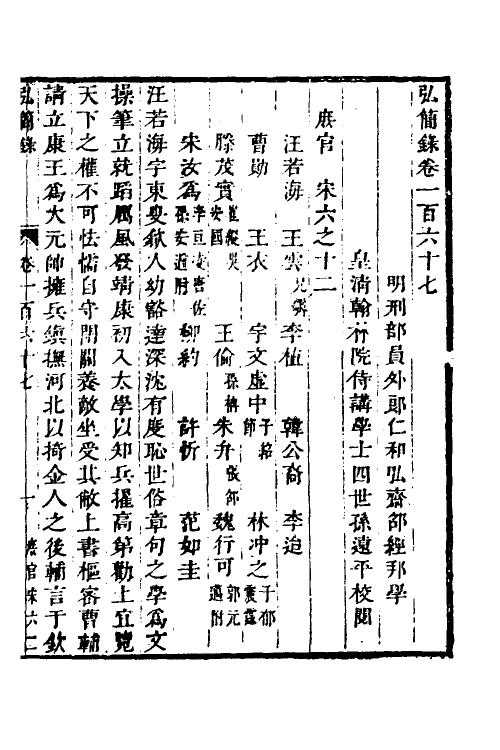 弘簡錄卷一百六十七
明刑部員外郎仁和弘齋邵經邦學
皇清翰林院侍講學士四世孫遠平校閱
庶官 宋六之十二
汪若海 王雲兄霽 李植 韓公裔 李迨
曹勛 王衣 宇文虛中 子紹節 林冲之 子郁 震 霆
滕茂實 崔縱 吳安國 王倫 孫柟 朱弁 張邵 魏行可 郭元邁附
宋汝爲 李亘 凌唐佐 孫安道附 柳約 許忻 范如圭
汪若海字東叟歙人幼豁達深沈有度恥世俗章句之學爲文
操筆立就蹈厲風發靖康初入太學以知兵擢高第勸上宜覽
天下之權不可怯懦自守閉關養敵坐受其敝上書樞密曹輔
請立康王爲大元帥擁兵鎮撫河北以掎金人之後輔言于欽
弘簡錄 卷一百六十七 一 庶官宋六二